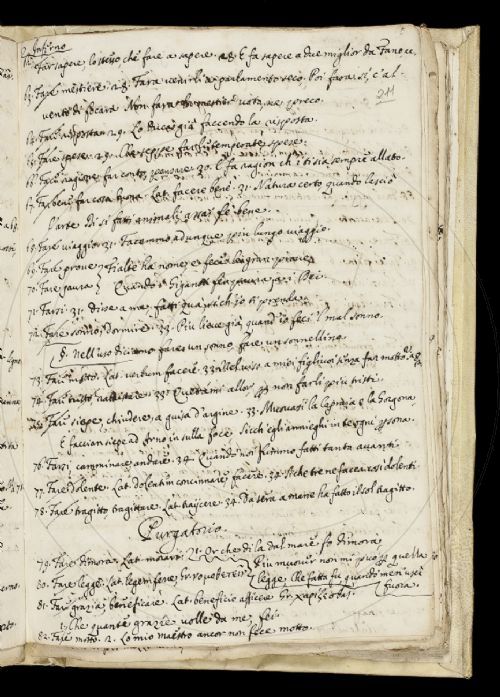 Inferno
62. Far sapere, lo stesso che fare a sapere. 28. E fa sapere a due miglior da Fano
63. Fare mestiere. 28. Farà venirli a parlamento seco, Poi farà sì, ch' al
vento di Focara Non farà lor mestier voto, nè preco.
64. Fare risposta. 29. Lo Duca già facendo la risposta.
65. Fare spese. 29. Che seppe far le temperate spese.
66. Fare ragione, far conto, pensare. 30. E fa ragion ch' i' ti sia sempre allato.
67. Far bene, far cosa buona. Lat. facere bene. 31. Natura certo quando lasciò
l'arte Di sì fatti animali, assai fè bene.
68. Fare viaggio. 31. Facemmo adunque più lungo viaggio.
69. Fare prove. Fialte ha nome, e fece le gran prove
70. Fare paura Quando i Giganti fer paura a i Dei.
71. Farsi. 31. disse a me, fatti qua, sì ch' io ti prenda.
72. Fare sonno, dormire. 33. Più lieve già, quand' io feci 'l mal sonno.
§. Nell' uso diciamo fare un sonno, fare un sonnellino.
73. Far motto. Lat. verbum facere. 33. nel viso a miei figliuoi senza far motto
74. Far tristo, rattristare. 33. Quetami allor per non farli più tristi
75. Far siepe, chiudere, a guisa d'argine. 33. Muovasi la Capraia, e la Gorgona,
E faccian siepe ad Arno in sulla foce, Sicch' egli annieghi in te ogni persona.
76. Farsi, camminare, andare. 34. Quando noi fummo fatti tanto avanti
77. Fare dolente. Lat. dolentem concinnare, facere. 34. Sì che tre ne facea così dolenti.
78. Fare tragitto, tragittare. Lat. traijcere. 34. Da sera a mane ha fatto il sol tragitto.
Purgatorio.
79. Fare dimora. Lat. morari. 2. Or che di là dal mal fiume dimora
Più muover non mi può, per quella
80. Fare legge. Lat. legem figere, Gr. legge, Che fatta fu quando men' uscì
fuora.
81. Far grazia, beneficare. Lat. beneficio afficere. Gr. χαρίζεσθαι.
1. Che quante grazie volle da me, fei.
82. Fare motto. 2. Lo mio maestro ancor non fece motto.
211